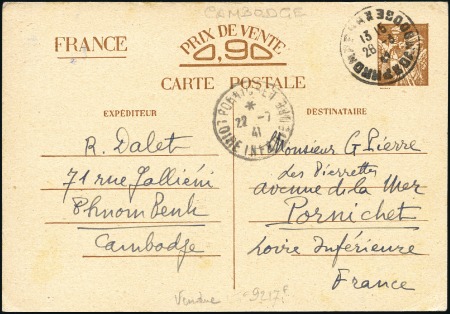 CAMBODGE
FRANCE
PRIX DE VENTE
0,90
CARTE POSTALE
EXPÉDITEUR
DESTINATAIRE
PORNICHET
*
22 -7
41
LOIRE INFERIEURE
R. Dalet
71 rue Galliéni
Phnom Penh
Cambodge
Monsieur G Pierre
Les Pierrettes
avenue de la Mer
Pornichet
Loire Inférieure
France
Vendue 9217F